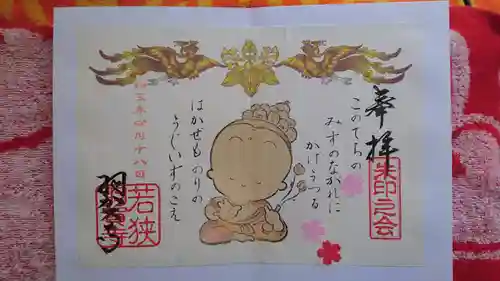 奉拝
朱印之会
このてちの
みすのながれに
かけうつる
はかせもののりの
うぐいすのこえ
五年四月十八日
若狭
羽賀寺